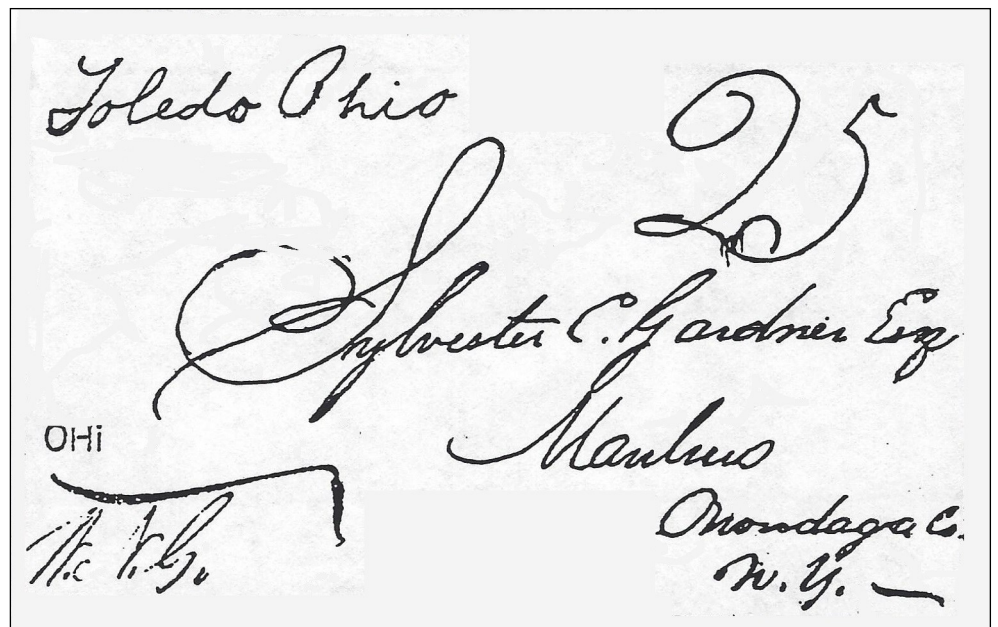 Toledo Ohio
25
Sylvester C. Gardner Esq
Manlius
Onondaga Co.
N. Y.
OHi